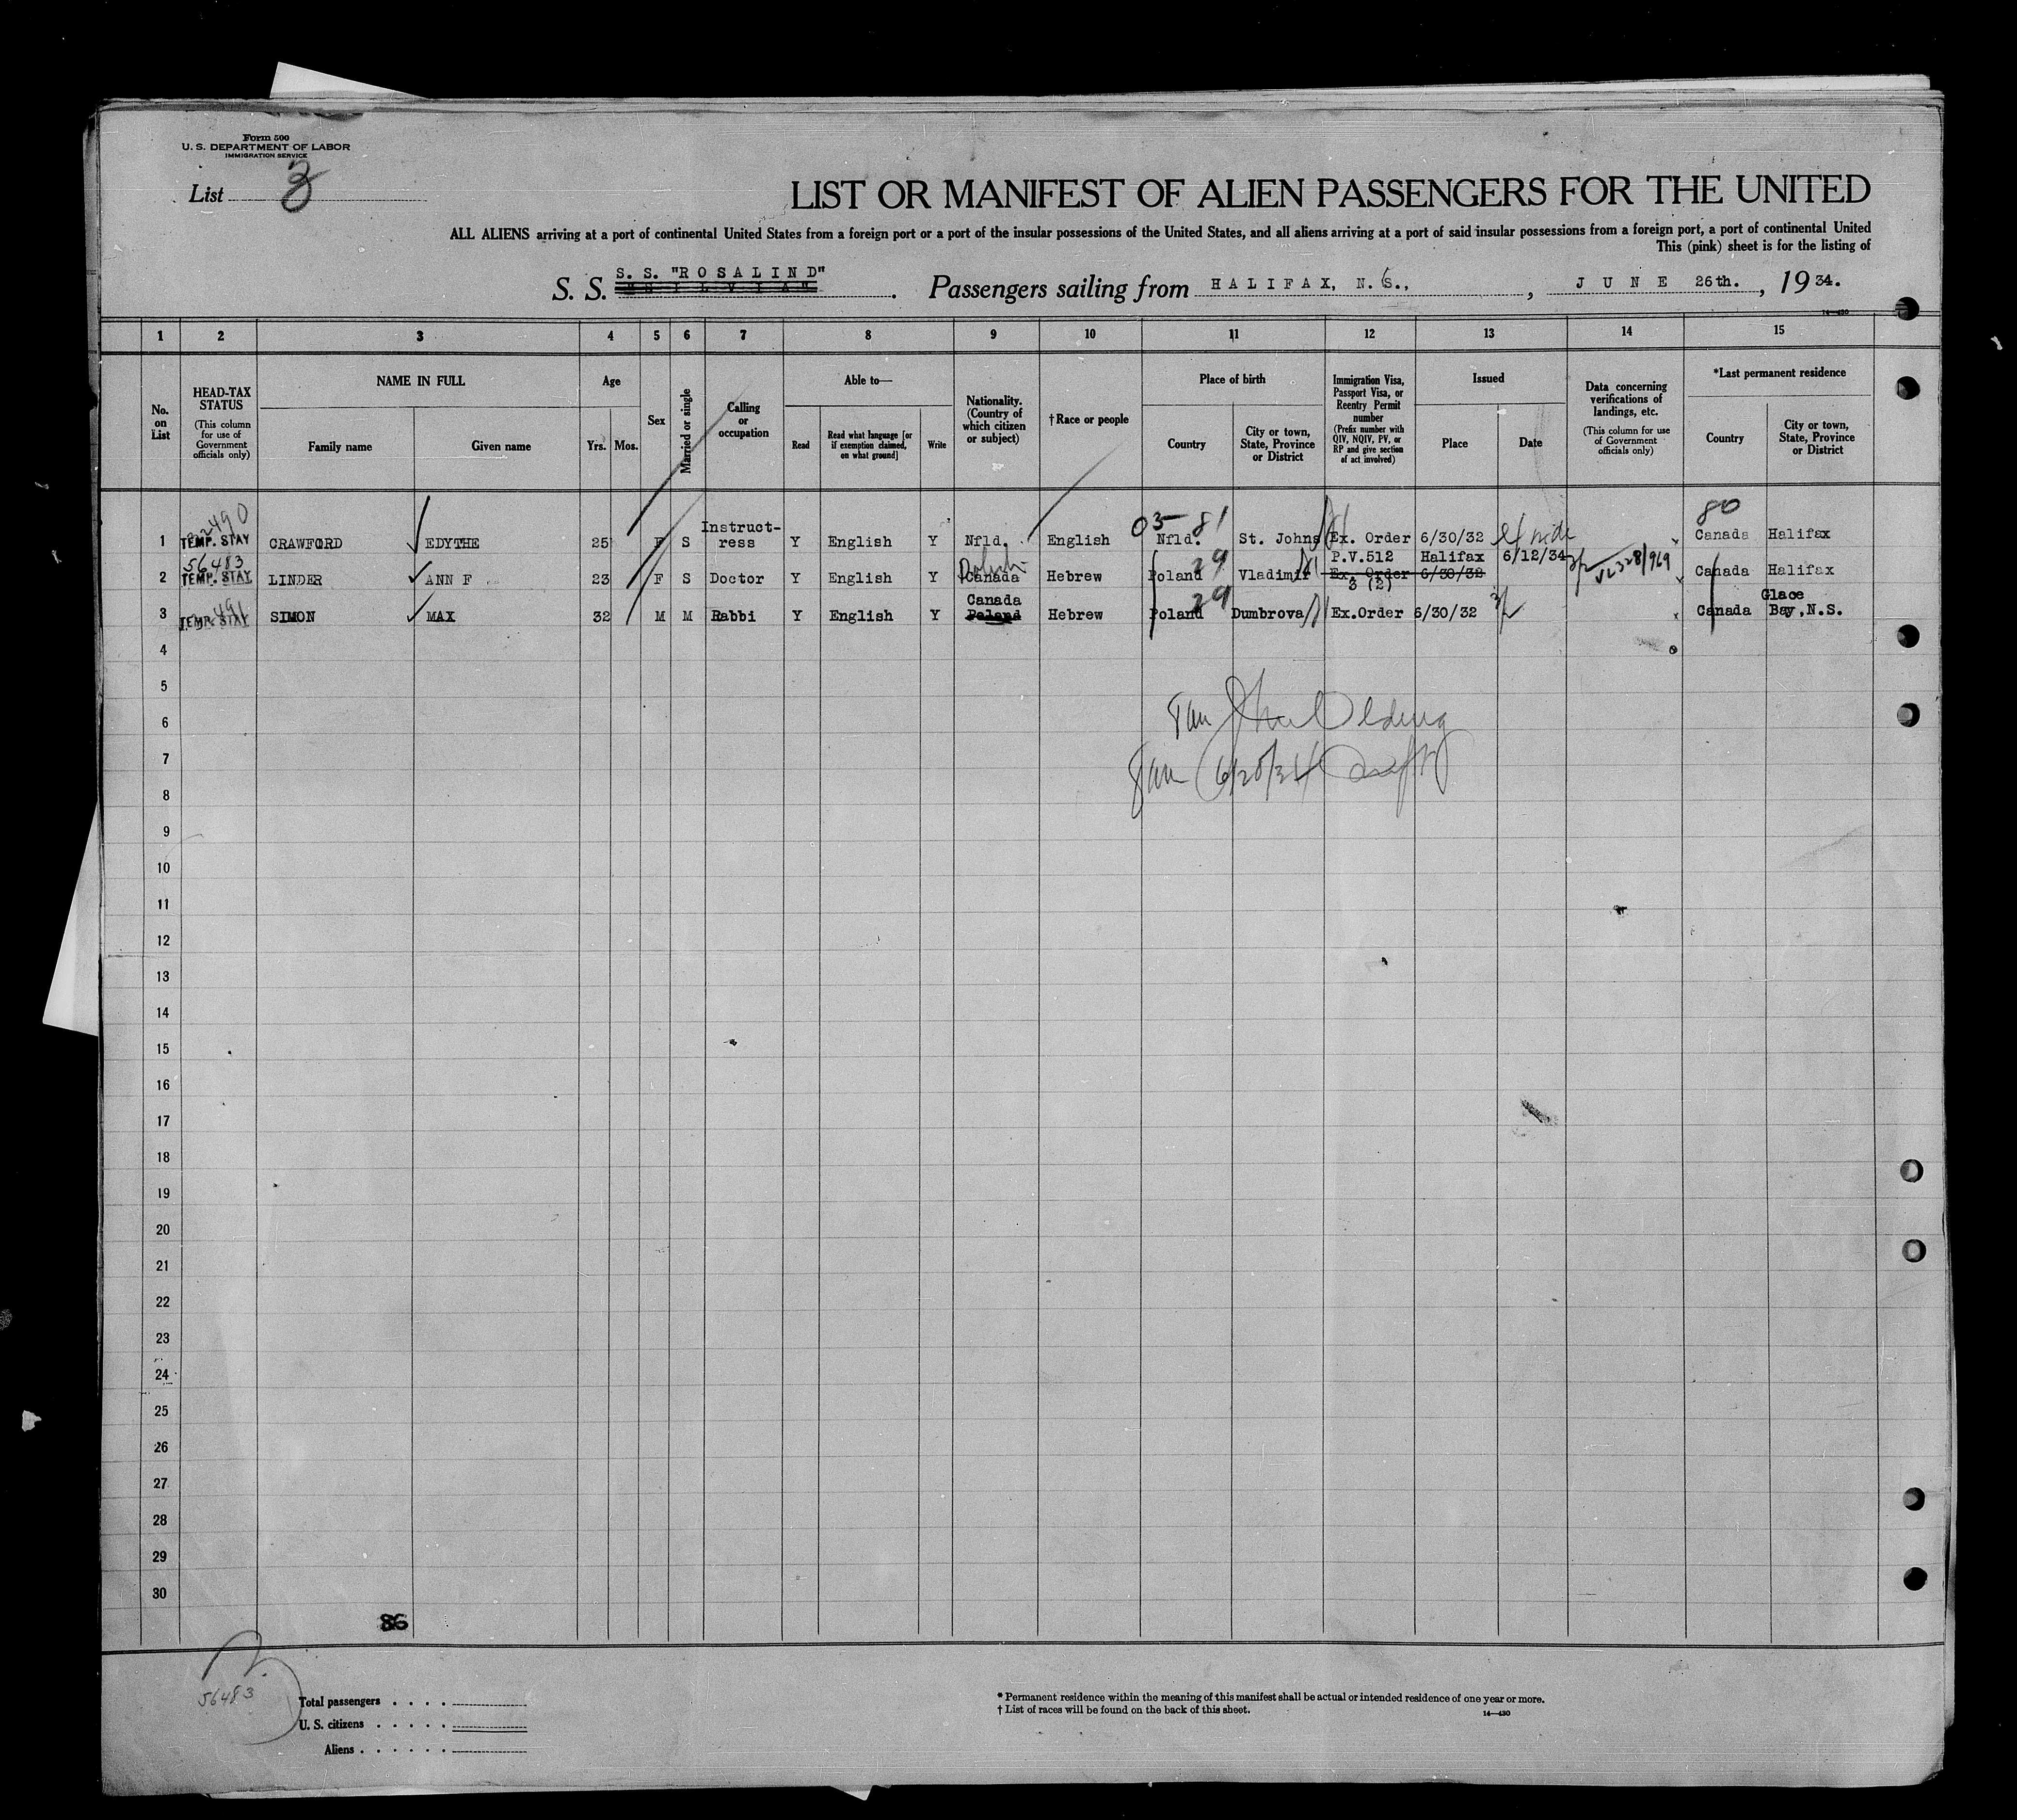 Form 500
U. S. DEPARTMENT OF LABOR
IMMIGRATION SERVICE
List 3
LIST OR MANIFEST OF ALIEN PASSENGERS FOR THE UNITED
ALL ALIENS arriving at a port of continental United States from a foreign port or a port of the insular possessions of the United States, and all aliens arriving at a port of said insular possessions from a foreign port, a port of continental United
This (pink) sheet is for the listing of
S. S. S. S. "ROSALIND". Passengers sailing from HALIFAX, N. S., , JUNE 26th. , 1934.
14—430
1 2 3 4 5 6 7 8 9 10 11 12 13 14 15
No. on List
HEAD-TAX STATUS
(This column for use of Government officials only)
NAME IN FULL
Family name Given name
Age
Yrs. Mos.
Sex
Married or single
Calling or occupation
Able to—
Read
Read what language [or if exemption claimed, on what ground]
Write
Nationality. (Country of which citizen or subject)
† Race or people
Place of birth
Country
City or town, State, Province or District
Immigration Visa, Passport Visa, or Reentry Permit number
(Prefix number with QIV, NQIV, PV, or RP and give section of act involved)
Issued
Place Date
Data concerning verifications of landings, etc.
(This column for use of Government officials only)
*Last permanent residence
Country
City or town, State, Province or District
490 03 81 80
1 TEMP. STAY CRAWFORD EDYTHE 25 F S Instruct-ress Y English Y Nfld. English Nfld. St. Johns Ex. Order 6/30/32 Canada Halifax
56483 Polish 29 P.V.512 Halifax 6/12/34
2 TEMP. STAY LINDER ANN F 23 F S Doctor Y English Y Canada Hebrew Poland Vladimir Ex. Order 6/30/32 Canada Halifax
3 (2)
491 Canada 29 Glace
3 TEMP. STAY SIMON MAX 32 M M Rabbi Y English Y Poland Hebrew Poland Dumbrova Ex.Order 6/30/32 Canada Bay, N.S.
4
5
6
7
8
9
10
11
12
13
14
15
16
17
18
19
20
21
22
23
24
25
26
27
28
29
30
86
56483
Total passengers . . . .
U. S. citizens . . . . .
Aliens . . . . . .
* Permanent residence within the meaning of this manifest shall be actual or intended residence of one year or more.
† List of races will be found on the back of this sheet.
14—430